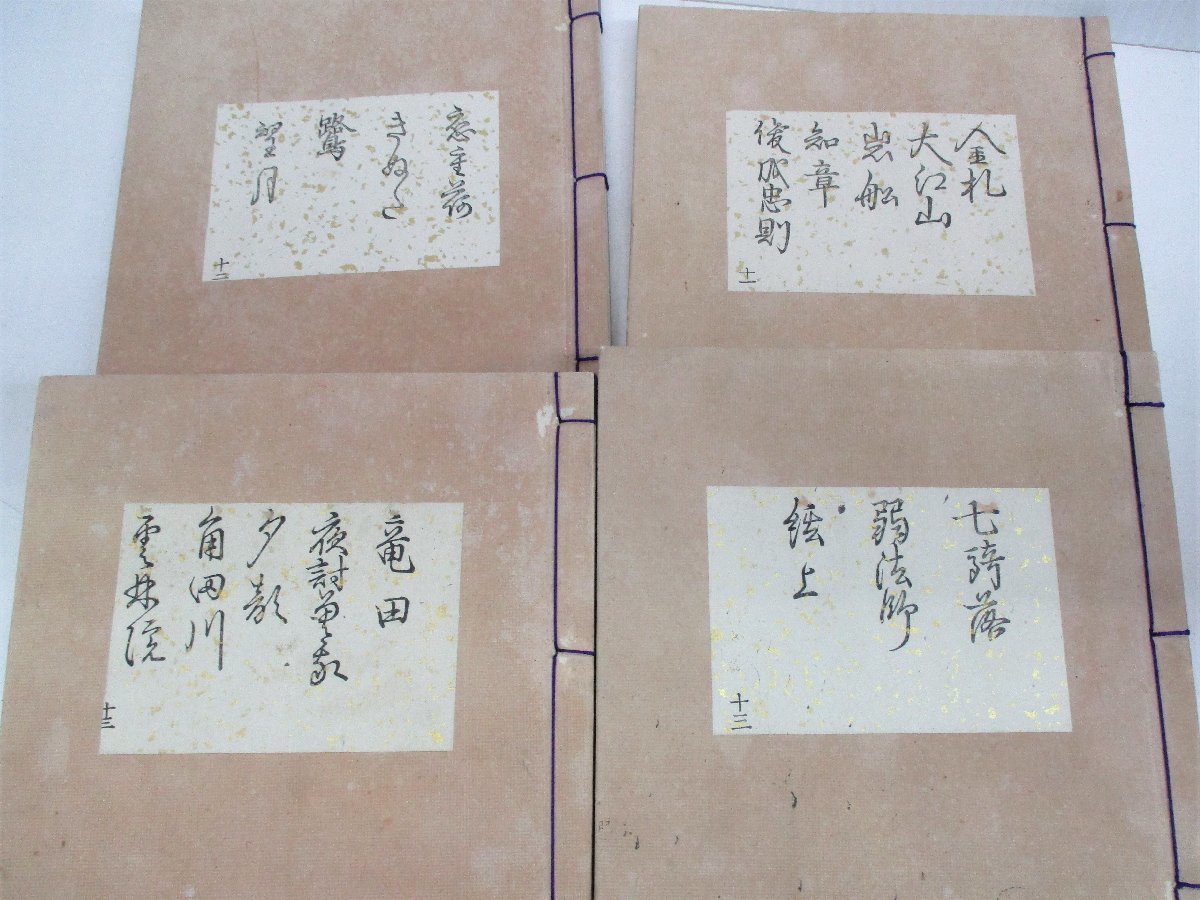 恋重荷
きぬた
鷺
望月
十二
金札
大江山
岩船
知章
俊成忠則
十一
竜田
夜討曽我
夕顔
角田川
雲林院
十三
七騎落
弱法師
絃上
十三